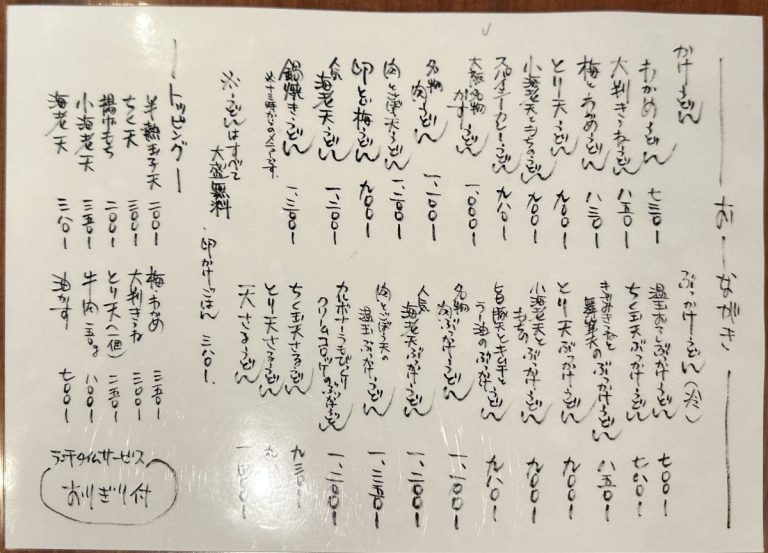 おしながき
かけうどん
わかめうどん 七三〇ー
大判きつねうどん 八五〇ー
梅とわかめうどん 八三〇ー
とり天うどん 九〇〇ー
小海老天ともちのうどん 九〇〇ー
スパイシーカレーうどん 九八〇ー
大阪名物
かすうどん 一、〇〇〇ー
名物
肉うどん 一、一〇〇ー
肉とごぼう天うどん 一、二〇〇ー
卵とじ梅うどん 九〇〇ー
人気
海老天うどん 一、二〇〇ー
鍋焼きうどん 一、三〇〇ー
※うどんはすべて
大盛無料
ぶっかけうどん(冷)
温玉おろしぶっかけうどん 七〇〇ー
ちく玉天ぶっかけうどん 七八〇ー
きざみきつねと
舞茸天のぶっかけうどん 八五〇ー
とり天ぶっかけうどん 九〇〇ー
小海老天と
もちのぶっかけうどん 九〇〇ー
旨豚天とキムチと
ラー油のぶっかけうどん 九八〇ー
名物
肉ぶっかけうどん 一、一〇〇ー
人気
海老天ぶっかけうどん 一、二〇〇ー
肉とごぼう天の
温玉ぶっかけうどん 一、三五〇ー
カルボナーラ
クリームコロッケのぶっかけうどん 一、二〇〇ー
ちく玉天ざるうどん 九三〇ー
とり天ざるうどん
天ざるうどん
卵かけごはん 三八〇ー
ートッピングー
半熟玉子天 二〇〇ー
ちく天 三〇〇ー
揚げもち 二〇〇ー
小海老天 三五〇ー
海老天 三八〇ー
梅・わかめ 三五〇ー
大判きつね 三〇〇ー
とり天(一個) 二五〇ー
牛肉 五〇g 八〇〇ー
油かす 七〇〇ー
ランチタイムサービス
おにぎり付